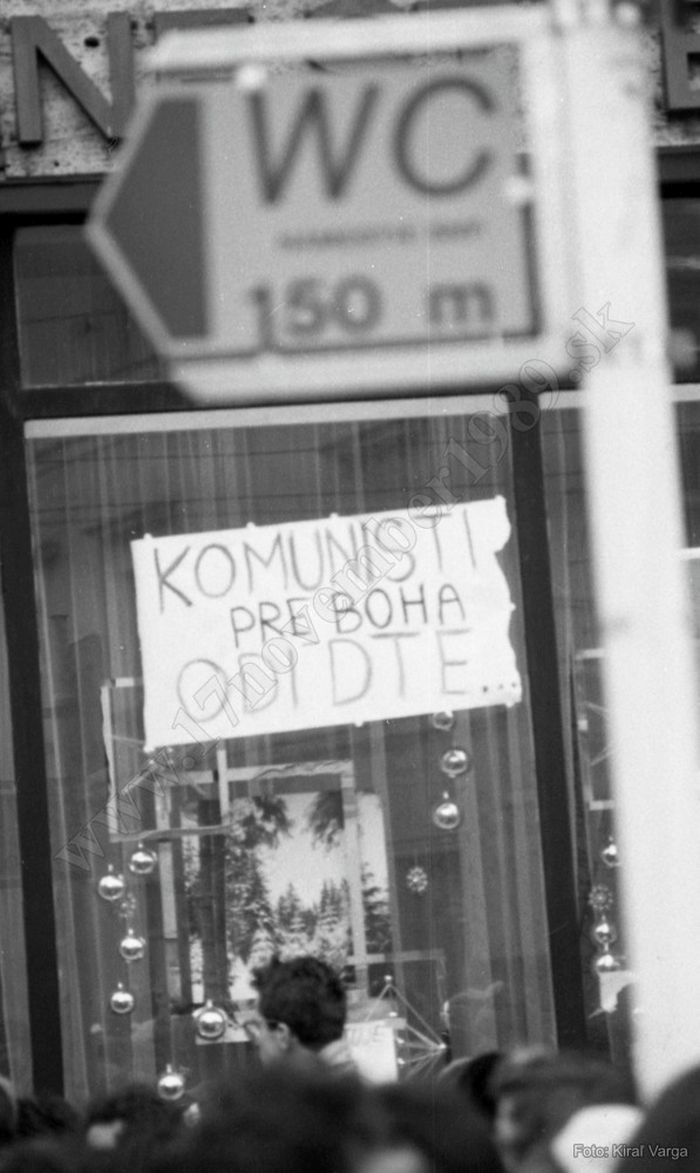 WC
150 m
KOMUNISTI
PRE BOHA
ODIDTE...
www.17november1989.sk
Foto: Kiraľ Varga